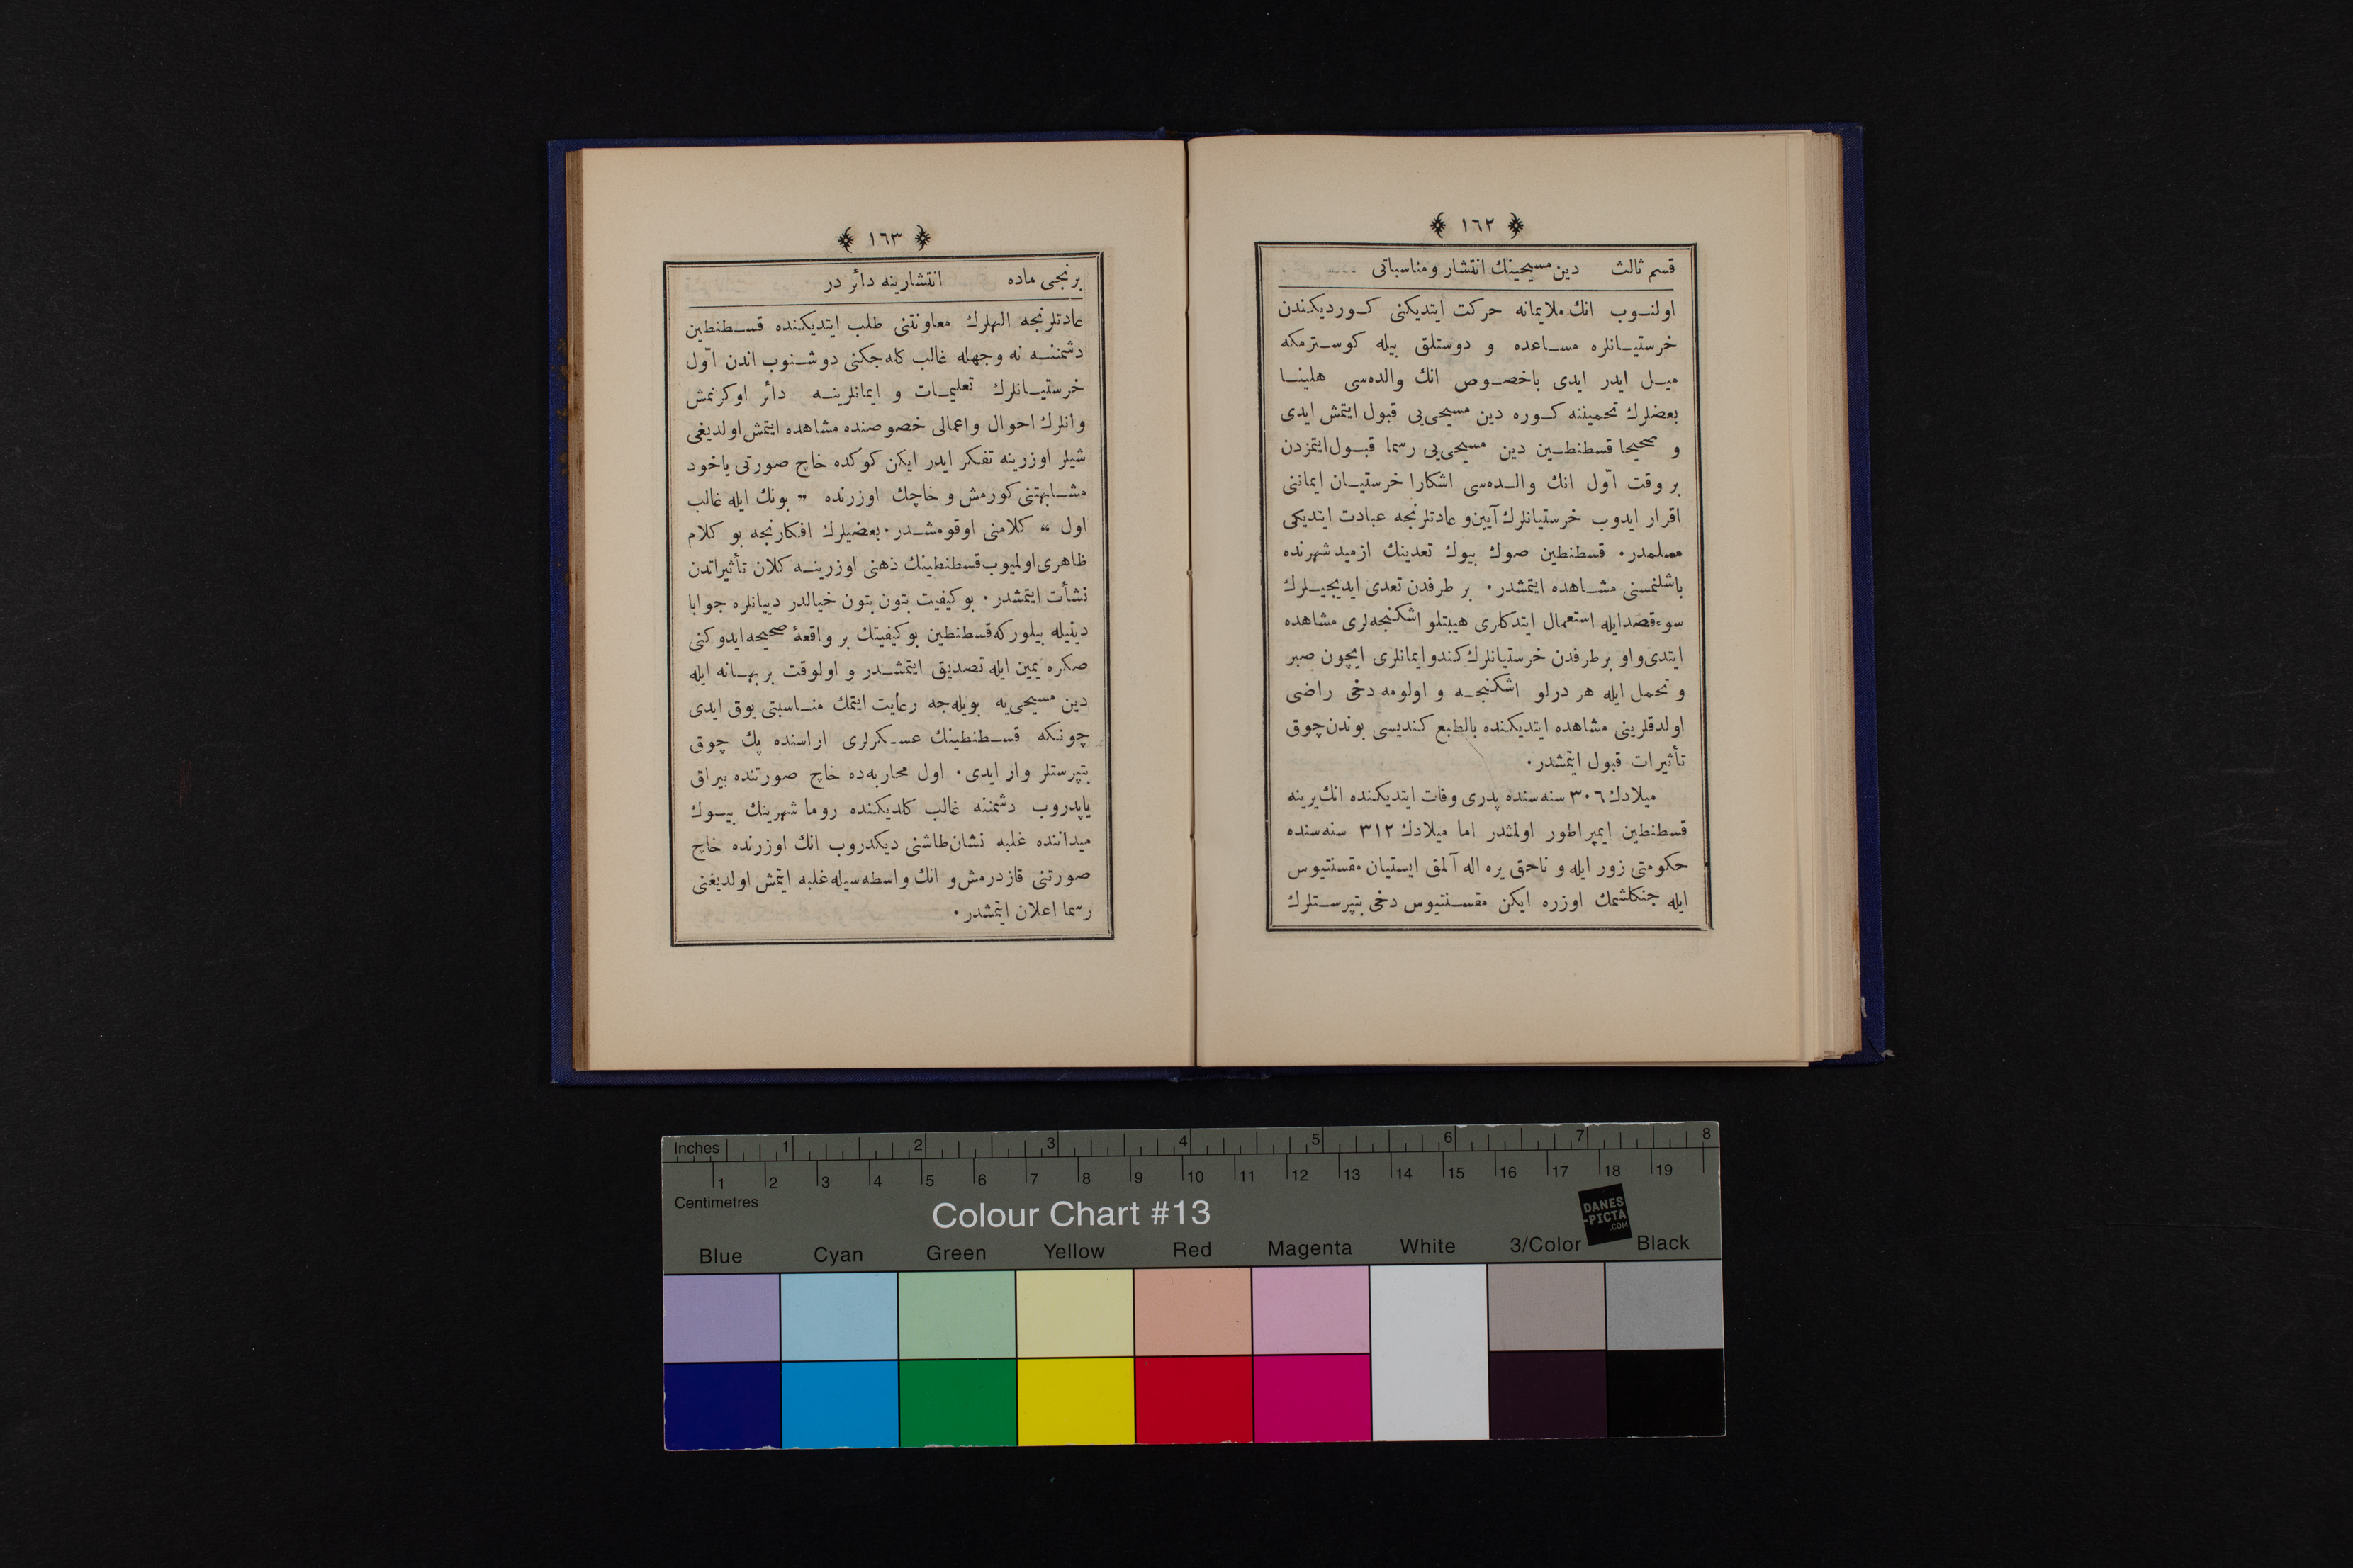 ﴿ ١٦٢ ﴾
قسم ثالث دين مسيحينك انتشار ومناسباتى
اولنـوب انك ملايمانه حركت ايتديكنى كـورديكندن
خرستيـانلره مسـاعده و دوستلق بيله كوسـترمكه
ميـل ايدر ايدى باخصـوص انك والده‌سى هلينـا
بعضلرك تخميننه كـوره دين مسيحى‌يى قبول ايتمش ايدى
و صحيحا قسطنطـين دين مسيحى‌يى رسما قبـول ايتمزدن
بر وقت اوّل انك والـده‌سى اشكارا خرستيـان ايماننى
اقرار ايدوب خرستيانلرك آيين و عادتلرنجه عبادت ايتديكى
مسلمدر. قسطنطين صوك بيوك تعدينك ازميد شهرنده
باشلنمسنى مشـاهده ايتمشدر. بر طرفدن تعدى ايديجيـلرك
سوءقصد ايله استعمال ايتدكلرى هيبتلو اشكنجه‌لرى مشاهده
ايتدى و او بر طرفدن خرستيانلرك كندو ايمانلرى ايچون صبر
و تحمل ايله هر درلو اشكنجـه و اولومه دخى راضى
اولدقلرينى مشاهده ايتديكنده بالطبع كنديسى بوندن چوق
تأثيرات قبول ايتمشدر.
ميلادك ٣٠٦ سنه سنده پدرى وفات ايتديكنده انك يرينه
قسطنطين ايمپراطور اولمشدر اما ميلادك ٣١٢ سنه سنده
حكومتى زور ايله و ناحق يره اله آلمق ايستيان مقسنتيوس
ايله جنكلشمك اوزره ايكن مقسـنتيوس دخى بتپرسـتلرك
﴿ ١٦٣ ﴾
برنجى ماده انتشارينه دائر در
عادتلرنجه الهلرك معاونتنى طلب ايتديكنده قسـطنطين
دشمننـه نه وجهله غالب كله‌جكنى دوشـنوب اندن اوّل
خرستيـانلرك تعليمـات و ايمانلرينـه دائر اوكرنمش
وانلرك احوال واعمالى خصوصنده مشاهده ايتمش اولديغى
شيلر اوزرينه تفكر ايدر ايكن كوكده خاچ صورتى ياخود
مشـابهتنى كورمش و خاچك اوزرنده „ بونك ايله غالب
اول “ كلامنى اوقومشـدر. بعضيلرك افكارنجه بو كلام
ظاهرى اولميوب قسطنطينك ذهنى اوزرينـه كلان تأثيراتدن
نشأت ايتمشدر. بو كيفيت بتون بتون خيالدر ديیانلره جوابا
دينيله بيلور كه قسطنطين بو كيفيتك بر واقعهٔ صحيحه ايدوكنى
صكره يمين ايله تصديق ايتمشـدر و اولوقت بر بهـانه ايله
دين مسيحى‌يه بويله‌جه رعايت ايتمك منـاسبتى يوق ايدى
چونكه قسـطنطينك عسـكرلرى اراسنده پك چوق
بتپرستلر وار ايدى. اول محاربه‌ده خاچ صورتنده بيراق
ياپدروب دشمننه غالب كلديكنده روما شهرينك بيـوك
ميداننده غلبه نشان طاشنى ديكدروب انك اوزرنده خاچ
صورتنى قازدرمش و انك واسطه سيله غلبه ايتمش اولديغنى
رسما اعلان ايتمشدر.
Inches 1 2 3 4 5 6 7 8
1 2 3 4 5 6 7 8 9 10 11 12 13 14 15 16 17 18 19
Centimetres
Colour Chart #13
DANES
-PICTA
.COM
Blue Cyan Green Yellow Red Magenta White 3/Color Black